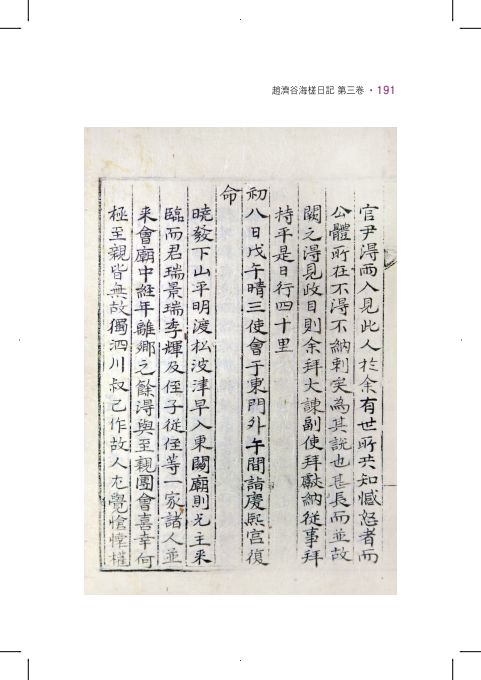 趙濟谷海槎日記 第三卷 • 191
官尹得雨入見此人於余有世所共知憾怒者而
公體所在不得不納刺実為其說也甚長而並故
闕之得見政目則余拜大諫副使拜獻納從事拜
持平是日行四十里
初八日戊午晴三使會于東門外午間詣慶熙宮復
命
曉發下山平明渡松波津早入東關廟則兄主来
臨而君瑞景瑞季輝及侄子從侄等一家諸人並
来會廟中經年離鄉之餘得與至親團會喜幸何
極至親皆無故獨泗川叔已作故人尤覺愴悼權